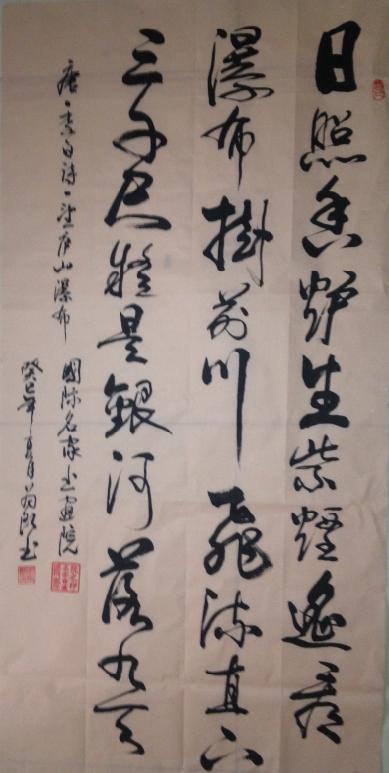 日照香炉生紫煙遙看
瀑布掛前川飛流直下
三千尺疑是銀河落九天
唐、李白诗、望庐山瀑布 國际名家书画院
癸巳年夏月书